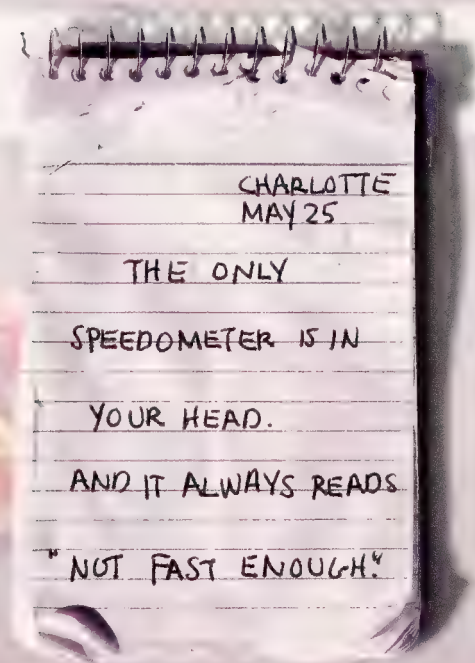 CHARLOTTE
MAY 25
THE ONLY
SPEEDOMETER IS IN
YOUR HEAD.
AND IT ALWAYS READS
"NOT FAST ENOUGH."